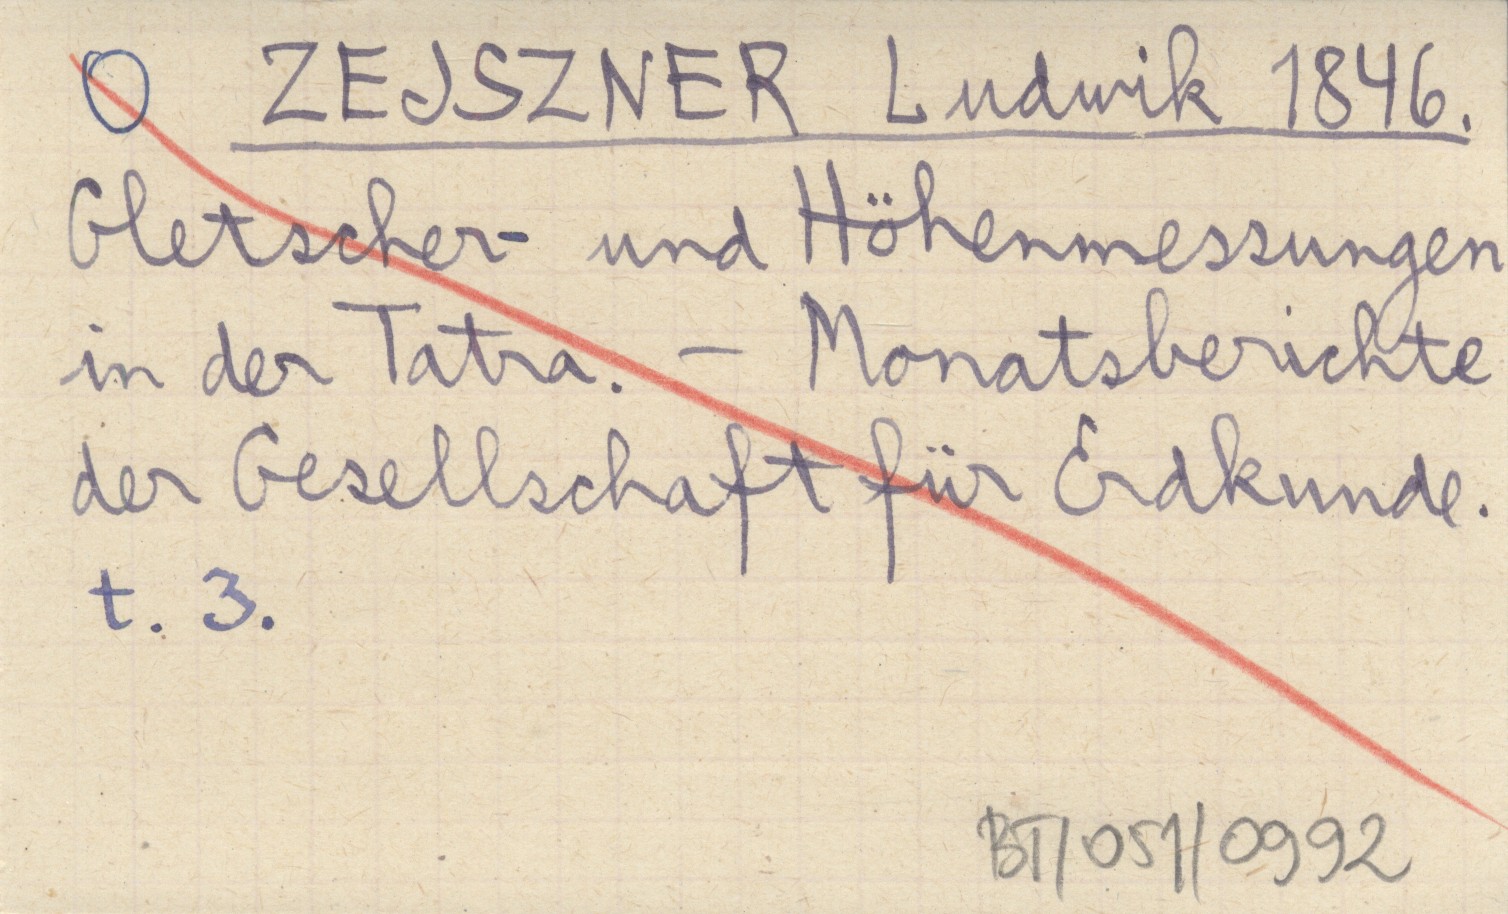 O ZEJSZNER Ludwik 1846.
Gletscher- und Höhenmessungen
in der Tatra. – Monatsberichte
der Gesellschaft für Erdkunde.
t. 3.
BT/051/0992